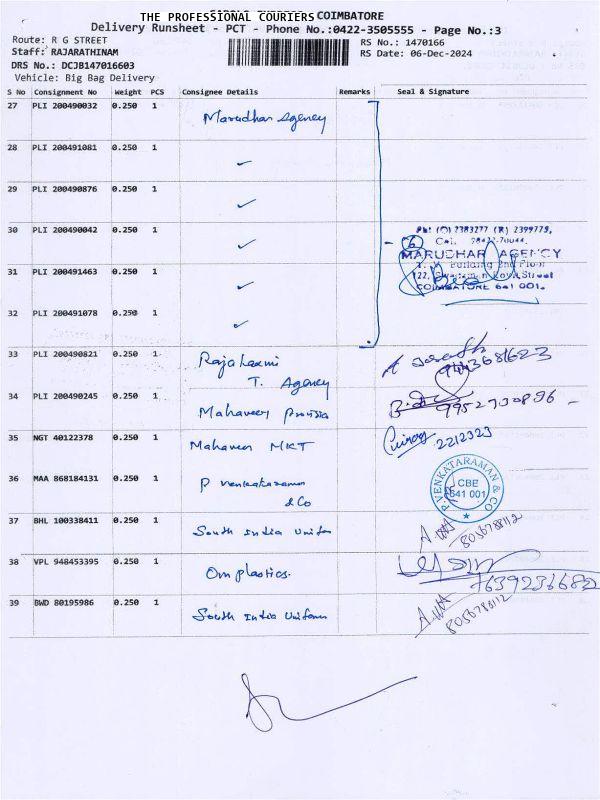 THE PROFESSIONAL COURIERS COIMBATORE
Delivery Runsheet - PCT - Phone No.:0422-3505555 - Page No.:3
Route: R G STREET
RS No.: 1470166
Staff: RAJARATHINAM
RS Date: 06-Dec-2024
DRS No.: DCJB147016603
Vehicle: Big Bag Delivery
S No Consignment No Weight PCS Consignee Details Remarks Seal & Signature
27 PLI 200490032 0.250 1 Marudhar Agency
28 PLI 200491081 0.250 1 ✓
29 PLI 200490876 0.250 1 ✓
30 PLI 200490042 0.250 1 ✓
Ph: (O) 2383277 (R) 2399779,
MARUDHAR AGENCY
31 PLI 200491463 0.250 1 ✓
Building 2nd Floor
COIMBATORE 641 001.
32 PLI 200491078 0.250 1 ✓
33 PLI 200490821 0.250 1 Raja Laxmi
T. Agency
34 PLI 200490245 0.250 1 Mahaveer
9952930896
35 NGT 40122378 0.250 1 Mahaveer MKT
2212323
36 MAA 868184131 0.250 1 P Venkataraman
& Co
P.VENKATARAMAN & CO
CBE
641 001
37 BHL 100338411 0.250 1 South India Uniform
38 VPL 948453395 0.250 1 Om plastics.
39 BWD 80195986 0.250 1 South India Uniform